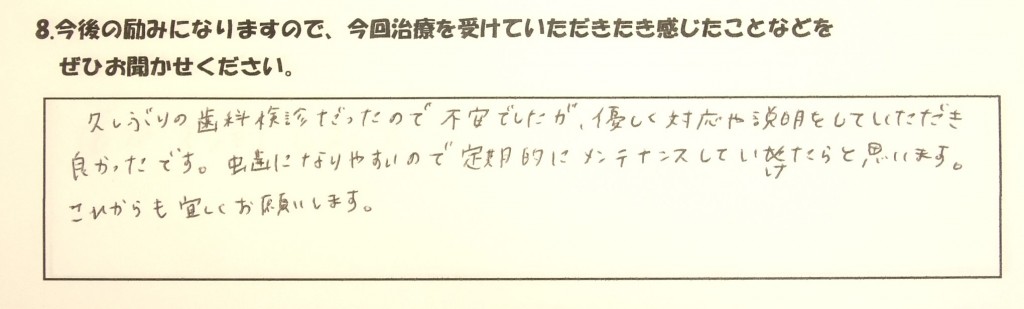 8.今後の励みになりますので、今回治療を受けていただきたき感じたことなどを
ぜひお聞かせください。
久しぶりの歯科検診だったので不安でしたが、優しく対応や説明をしていただき
良かったです。虫歯になりやすいので定期的にメンテナンスしていけたらと思います。
これからも宜しくお願いします。